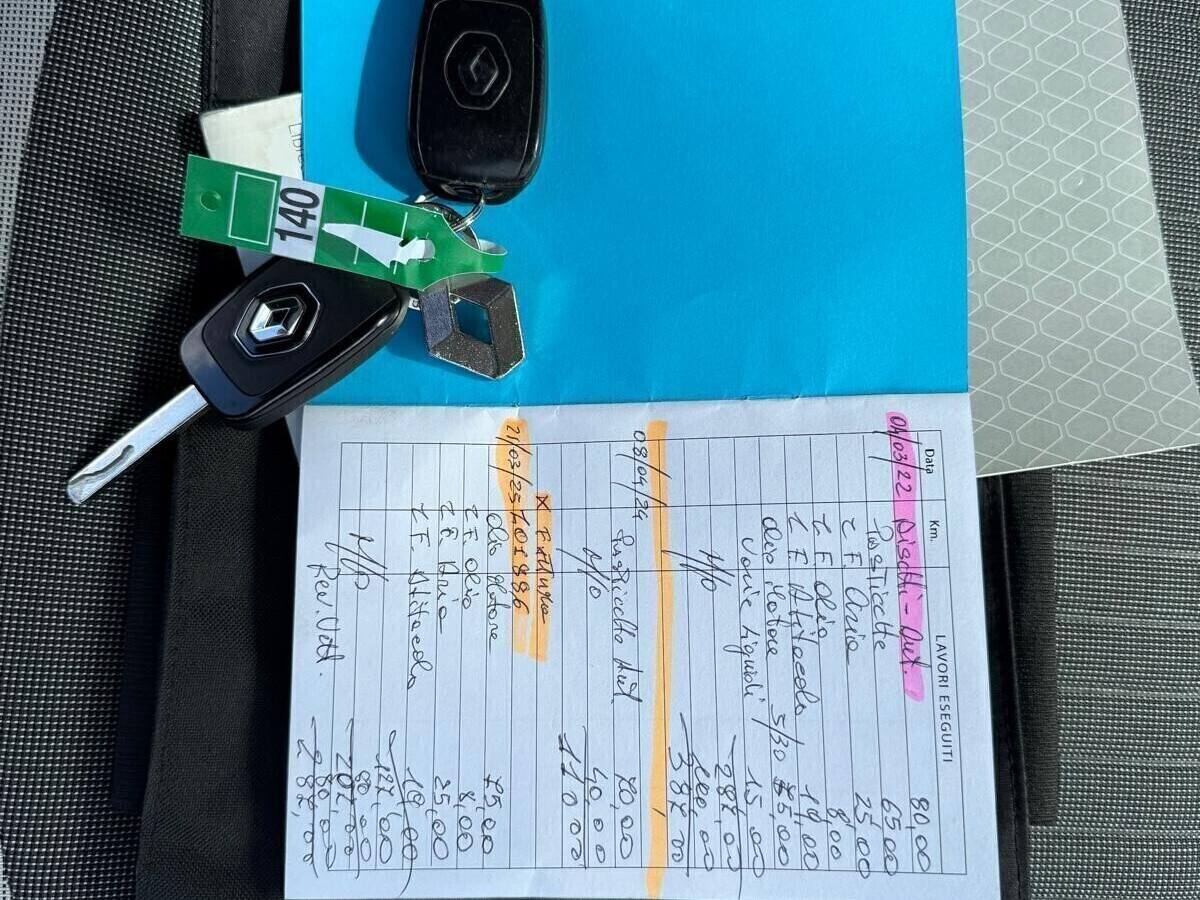 140
Data Km. LAVORI ESEGUITI
04/03/22 Dischi - Ant. 80,00
Pasticche 65,00
1 F Aria 25,00
1 F Olio 8,00
1 F. Abitacolo 19,00
olio Motore 5/30 75,00
Varie Liquidi 15,00
287,00
M/o 100,00
387,00
08/04/24 Pasticche Ant. 70,00
M/o 40,00
110,00
x Fattura
21/03/25 101886
olio Motore 75,00
1 F olio 8,00
1 F. Aria 25,00
1 F. Abitacolo 19,00
127,00
M/o 80,00
207,00
Rev. 80,00
287,00